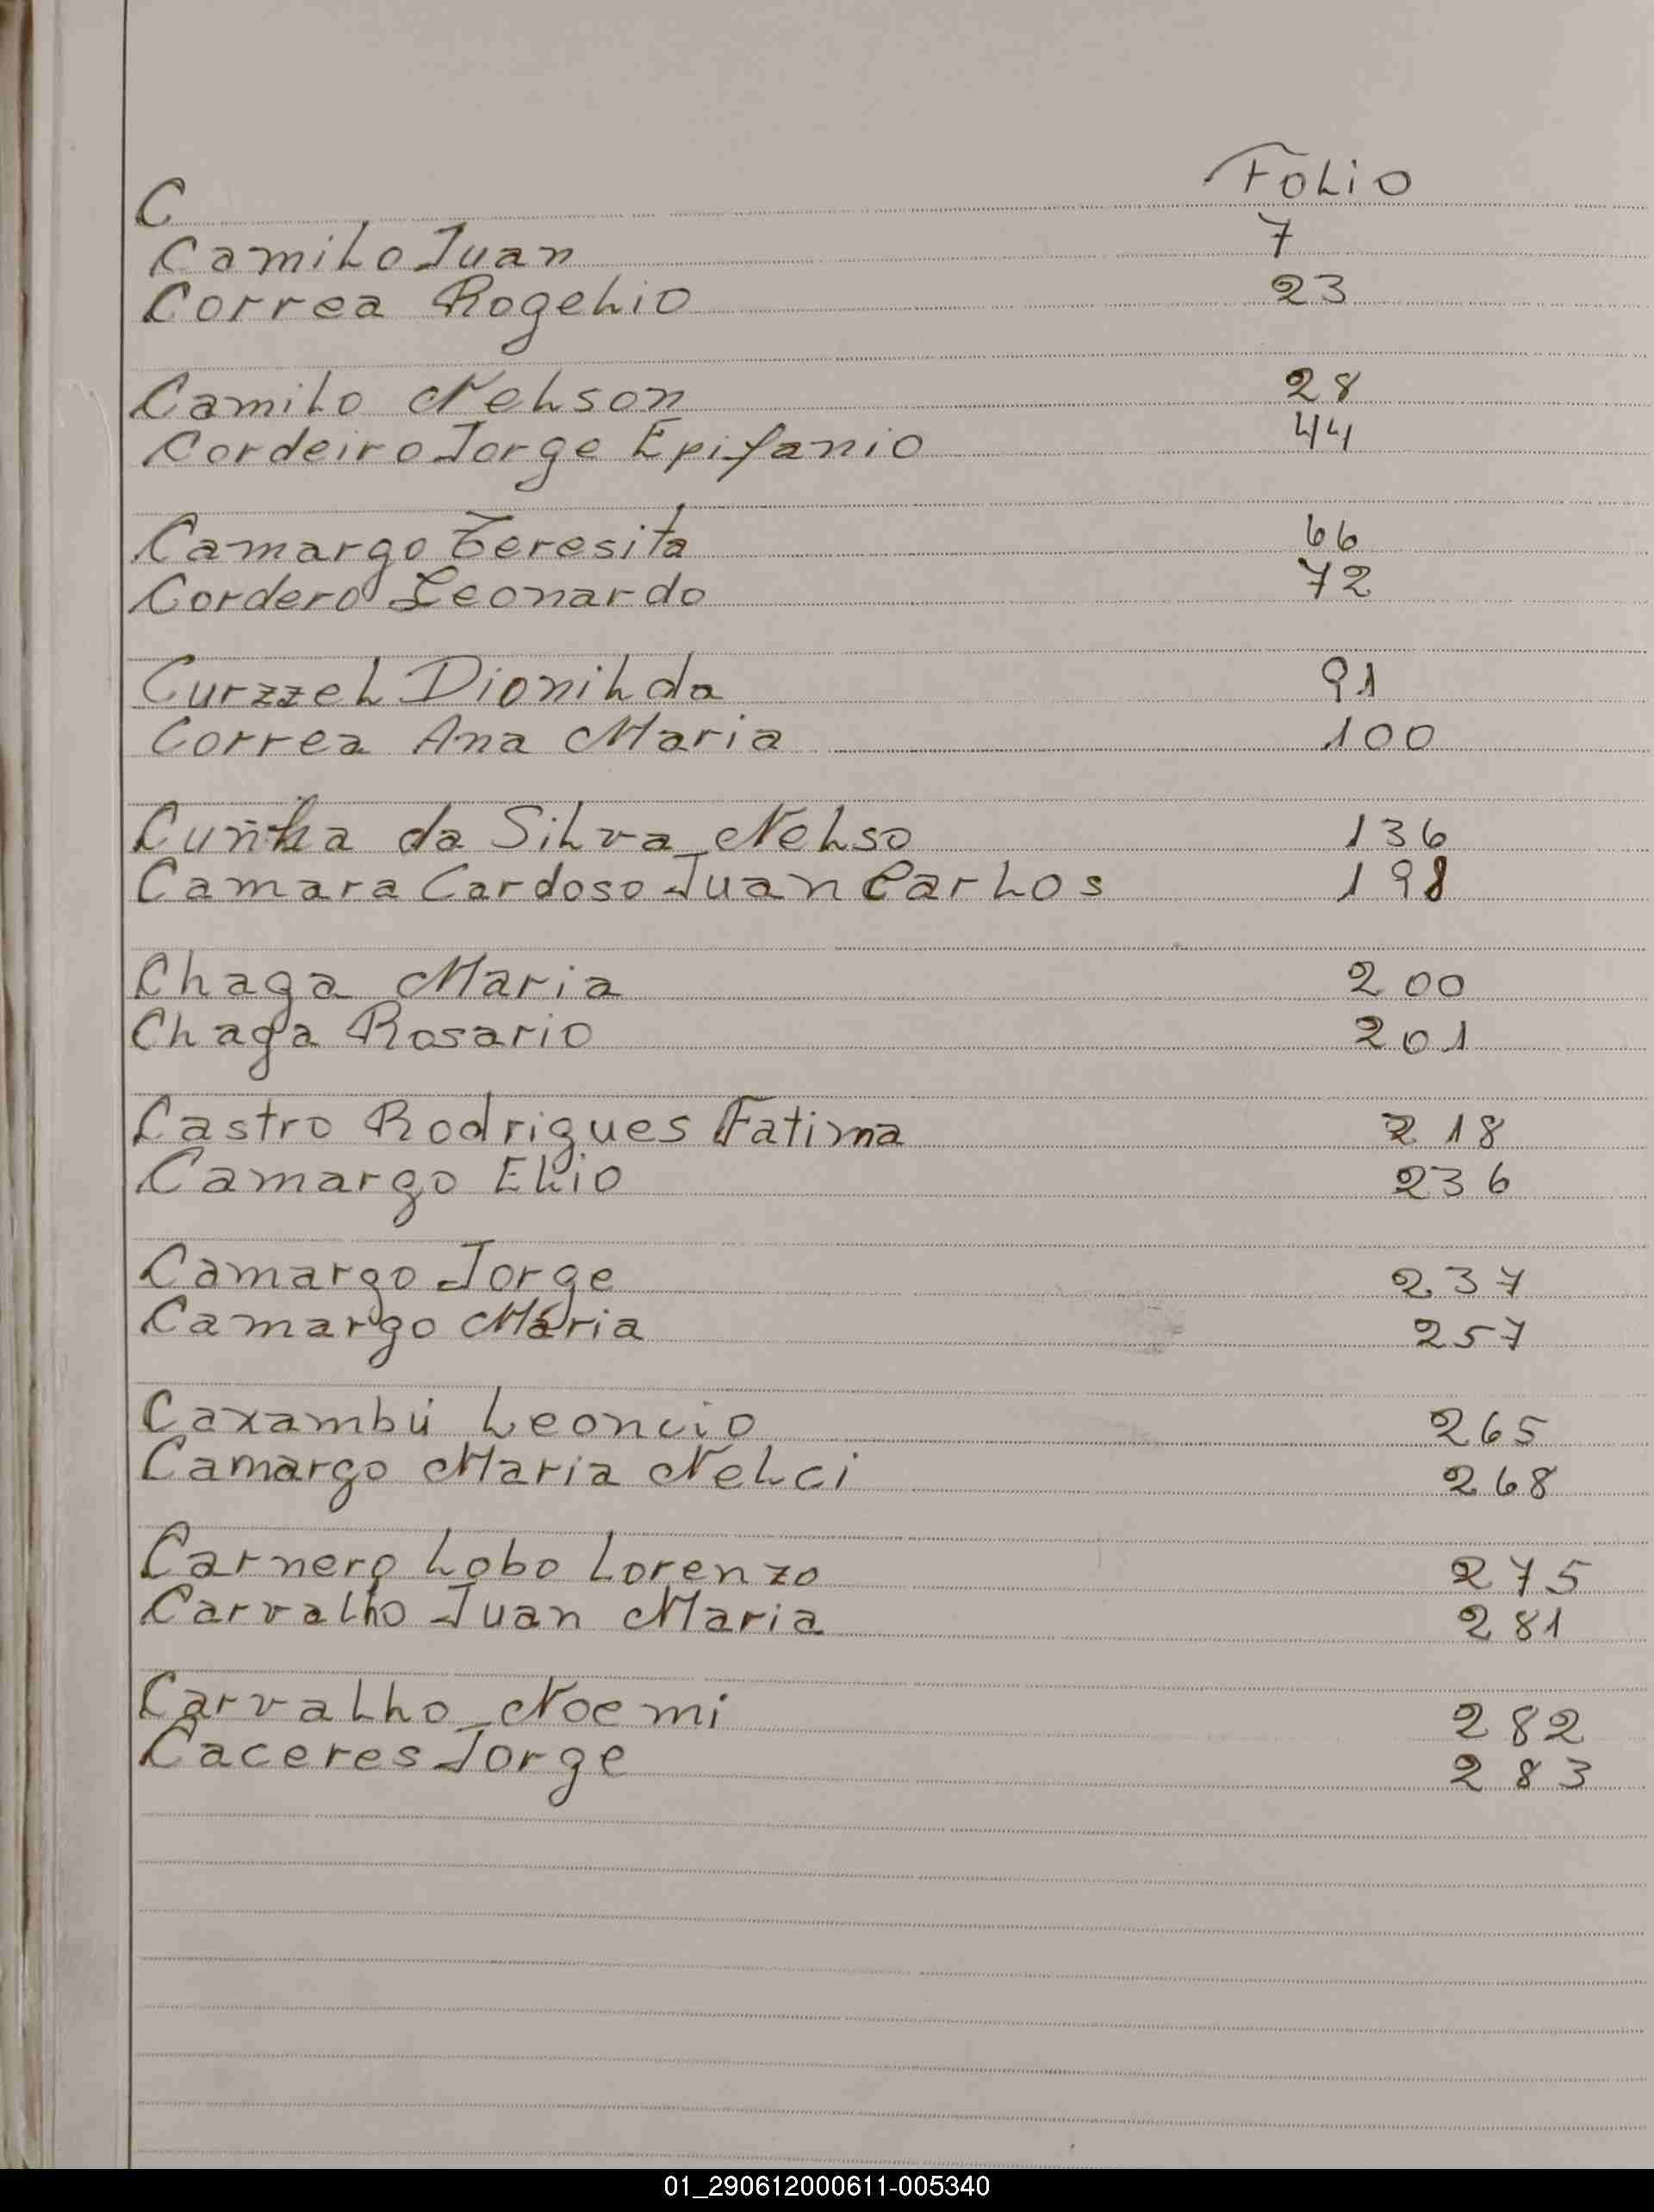 C Folio
Camilo Juan 7
Correa Rogelio 23
Camilo Nelson 28
Cordeiro Jorge Epifanio 44
Camargo Teresita 66
Cordero Leonardo 72
Curzzel Dionilda 91
Correa Ana Maria 100
Cunha da Silva Nelso 136
Camara Cardoso Juan Carlos 198
Chaga Maria 200
Chaga Rosario 201
Castro Rodrigues Fatima 218
Camargo Elio 236
Camargo Jorge 237
Camargo Maria 257
Caxambú Leoncio 265
Camargo Maria Nelci 268
Carnero Lobo Lorenzo 275
Carvalho Juan Maria 281
Carvalho Noemi 282
Caceres Jorge 283
01_290612000611-005340